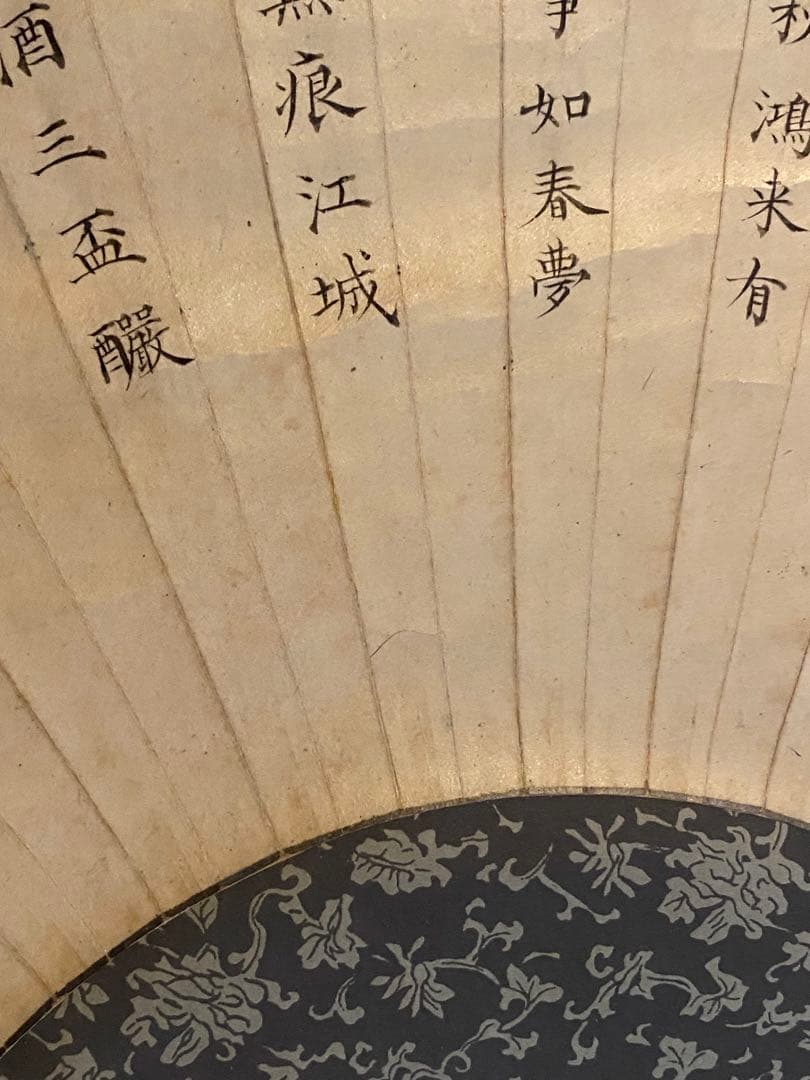 鴻来有
如春夢
痕江城
酒三盃釅